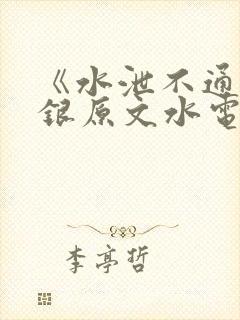 《水泄不通
银原文水電
李亭哲